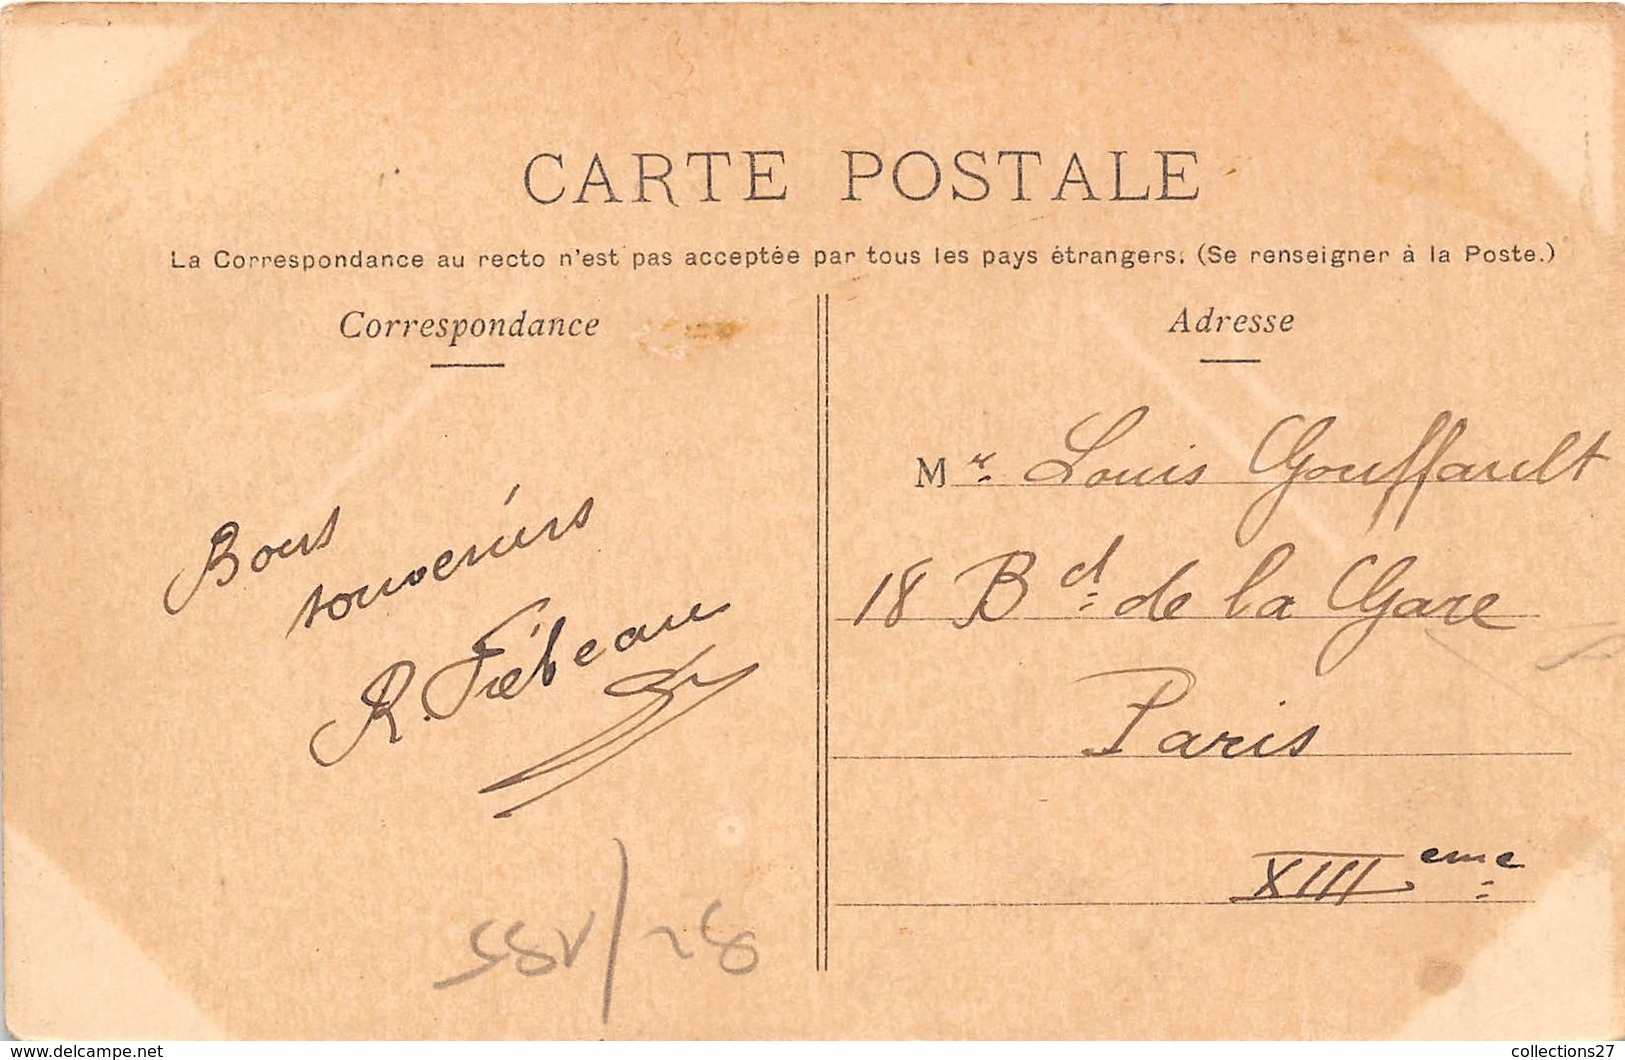 CARTE POSTALE
La Correspondance au recto n'est pas acceptée par tous les pays étrangers. (Se renseigner à la Poste.)
Correspondance
Bons
souvenirs
R. Fiébeau
Adresse
Mr. Louis Gouffault
18 Bd. de la Gare
Paris
XIIIeme
www.delcampe.net
collections27